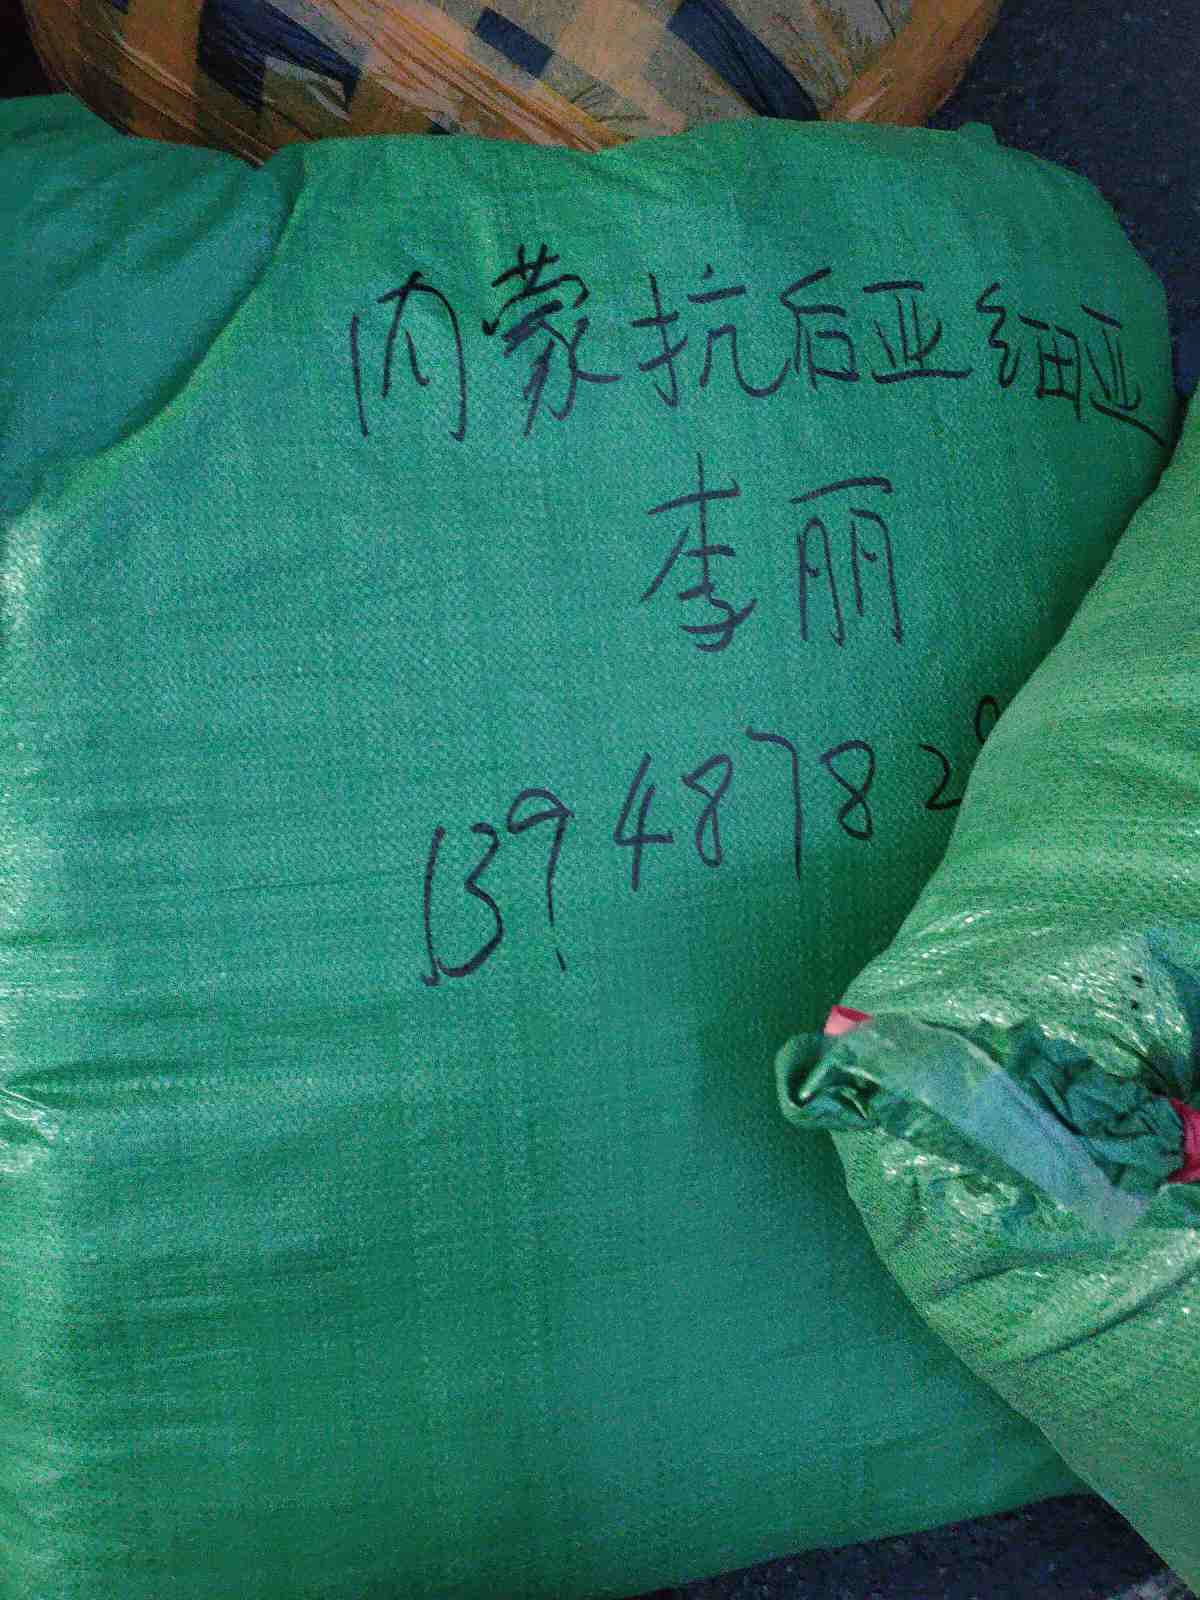 内蒙抗后亚细亚
李丽
13948782